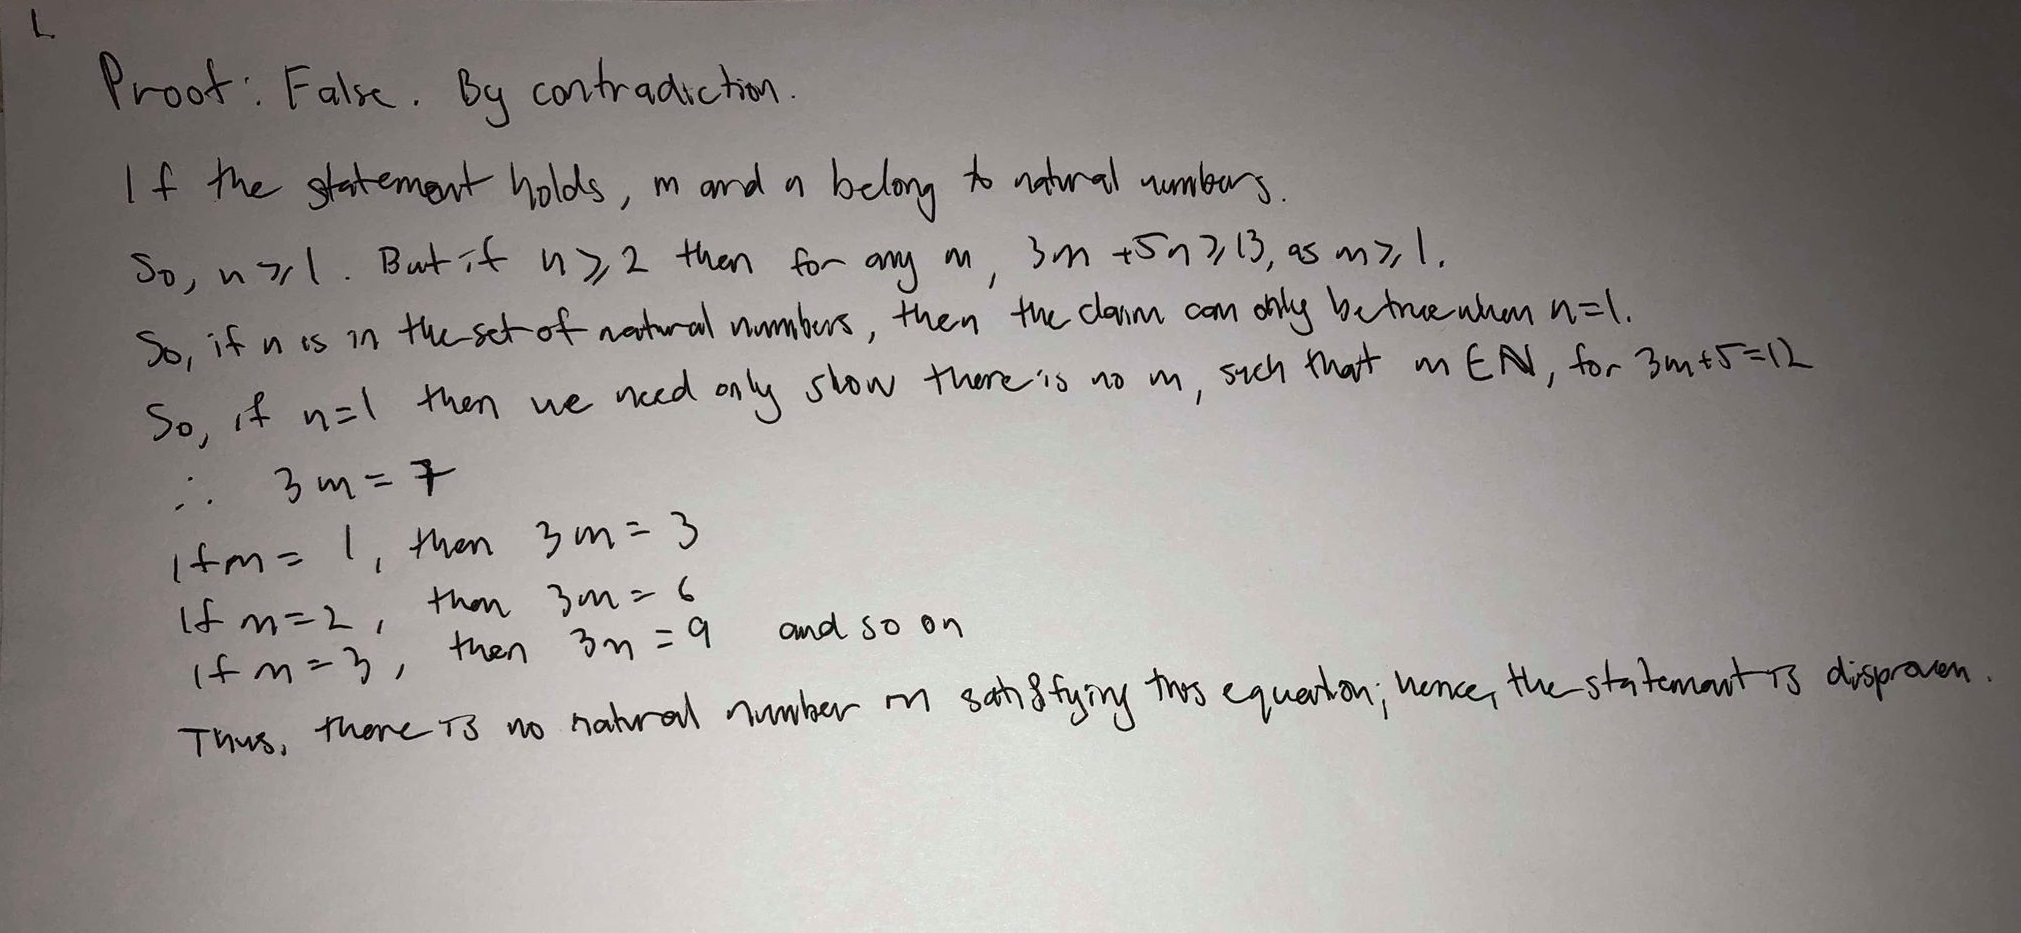 1.
Proof: False. By contradiction.
If the statement holds, m and n belong to natural numbers.
So, n ≥ 1. But if n ≥ 2 then for any m, 3m + 5n ≥ 13, as m ≥ 1.
So, if n is in the set of natural numbers, then the claim can only be true when n=1.
So, if n=1 then we need only show there is no m, such that m ∈ N, for 3m+5=12
∴ 3m = 7
If m = 1, then 3m = 3
If m = 2, then 3m = 6
If m = 3, then 3m = 9 and so on
Thus, there is no natural number m satisfying this equation; hence, the statement is disproven.